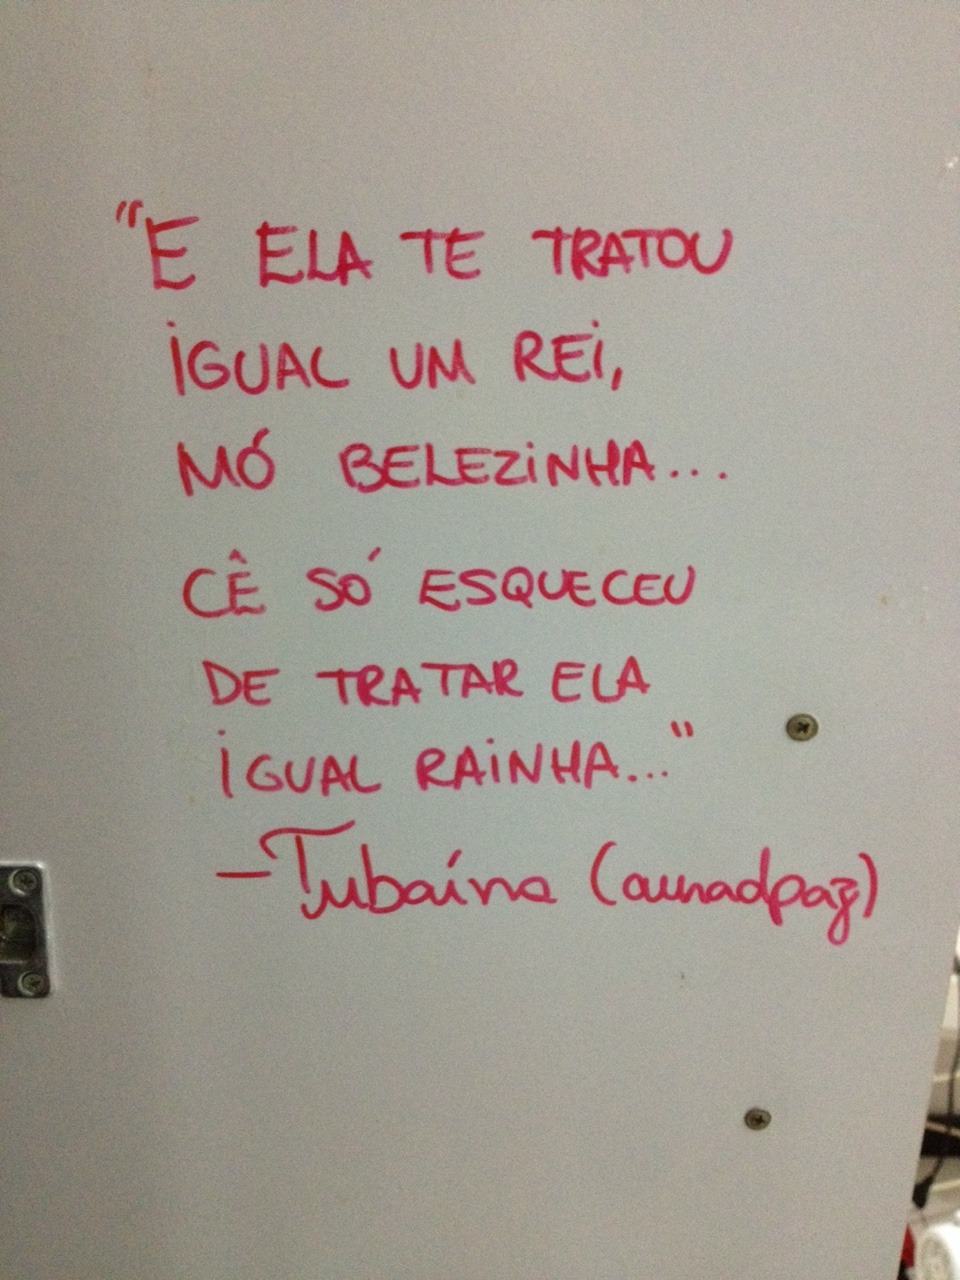 "E ELA TE TRATOU
IGUAL UM REI,
MÓ BELEZINHA...
CÊ SÓ ESQUECEU
DE TRATAR ELA
IGUAL RAINHA..."
- Tubaína (aunadpaz)